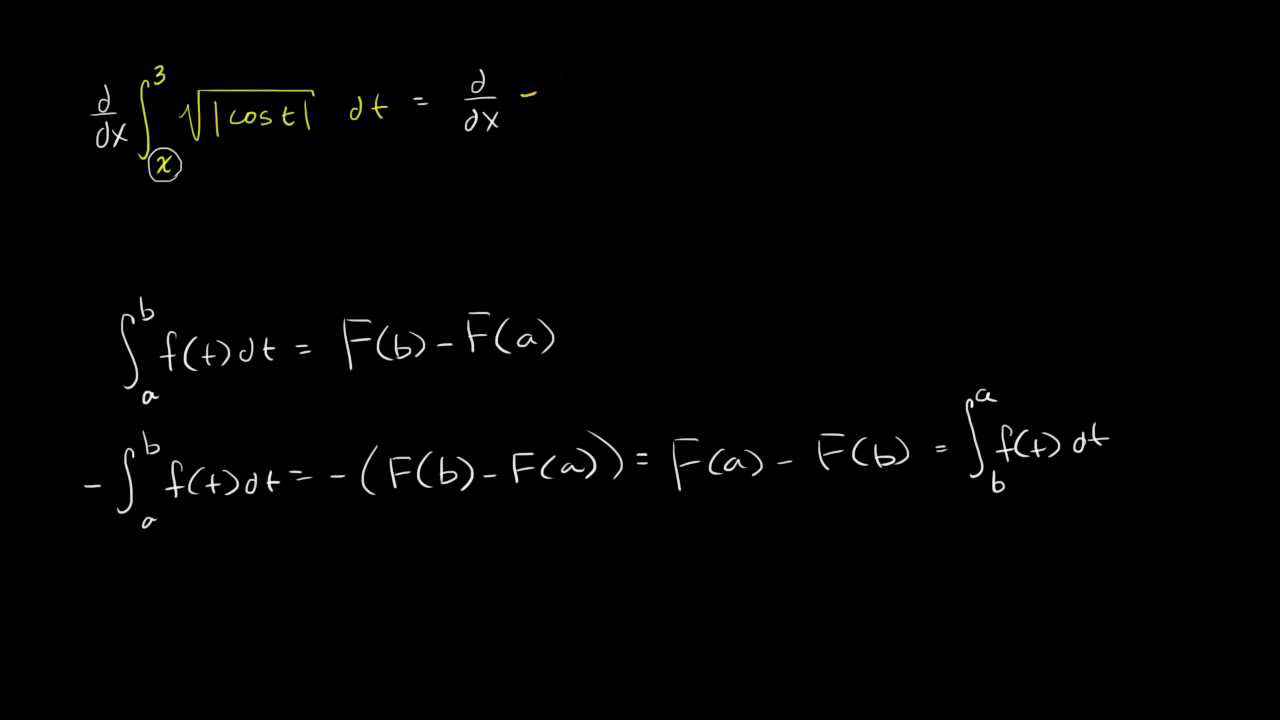 d/dx ∫_x^3 √|cos t| dt = d/dx -
∫_a^b f(t) dt = F(b) - F(a)
- ∫_a^b f(t) dt = - (F(b) - F(a)) = F(a) - F(b) = ∫_b^a f(t) dt